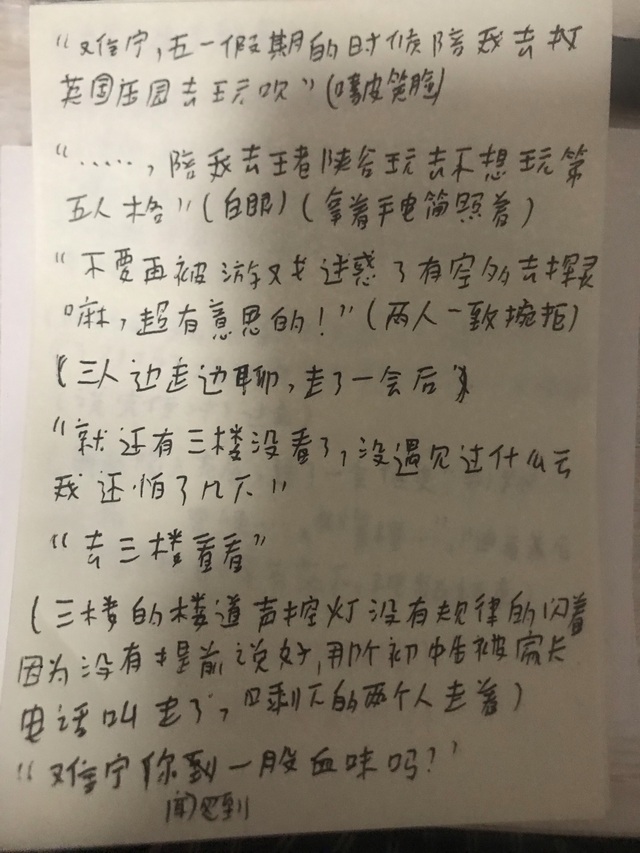 “难宁,五一假期的时候陪我去救
英国庄园去玩吹”(嘻皮笑脸)
“……,陪我去王者陕谷玩去不想玩第
五人格”(白眼)(拿着手电筒照着)
“不要再被游戏迷惑了有空多去探灵
嘛,超有意思的!”(两人一致婉拒)
(三人边走边聊,走了一会后)
“就还有三楼没看了,没遇见过什么云
我还怕了几下”
“去三楼看看”
(三楼的楼道声控灯没有规律的闪着
因为没有提前说好,那个初中生被家长
电话叫走了,只剩下的两个人走着)
“难宁你到一股血味吗?”
闻到